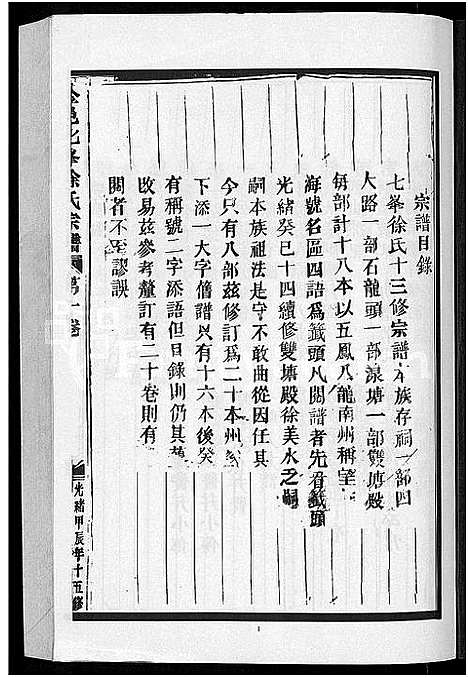 宗譜目錄
七峯徐氏十三修宗譜本族存祠一部四
大路一部石龍頭一部浪塘一部雙塘殿
每部計十八本以五鳳八龍南州稱望
海號名區四語爲籤頭凡閱譜者先看籤頭
光緒癸巳十四續修雙塘殿徐美水之嗣
嗣本族祖法是守不敢曲從因任其
今只有八部茲修訂爲二十本州
下添一大字舊譜只有十六本後癸
有稱號二字添語但目錄則仍其舊
改易茲參考釐訂有二十卷則有
閱者不至謬誤
邑七峯徐氏宗譜 第一卷
光緒甲辰年十五修